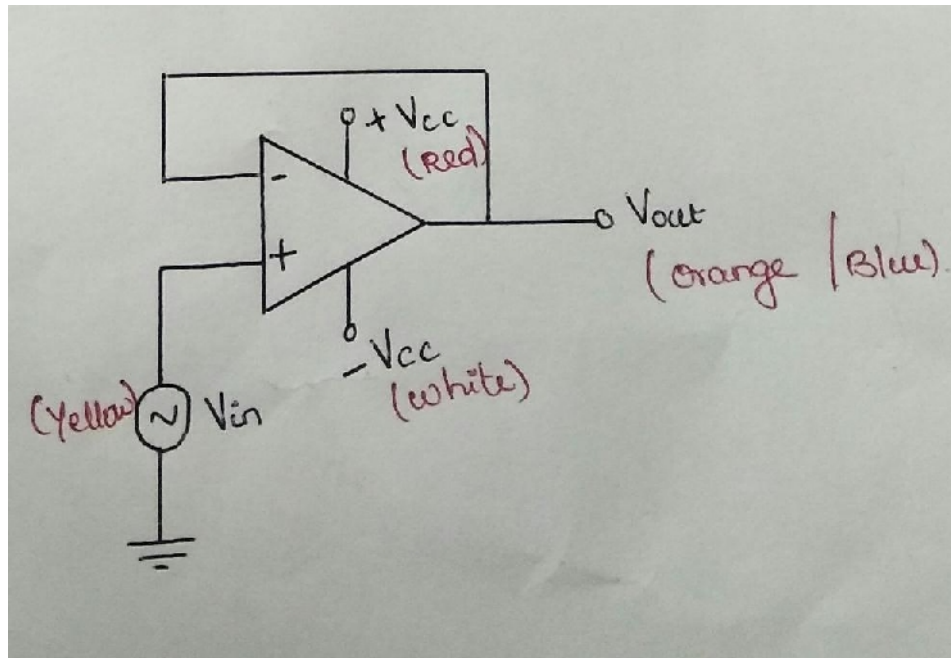 + Vcc
(Red)
-
+
Vout
(Orange / Blue)
- Vcc
(White)
(Yellow) ~ Vin